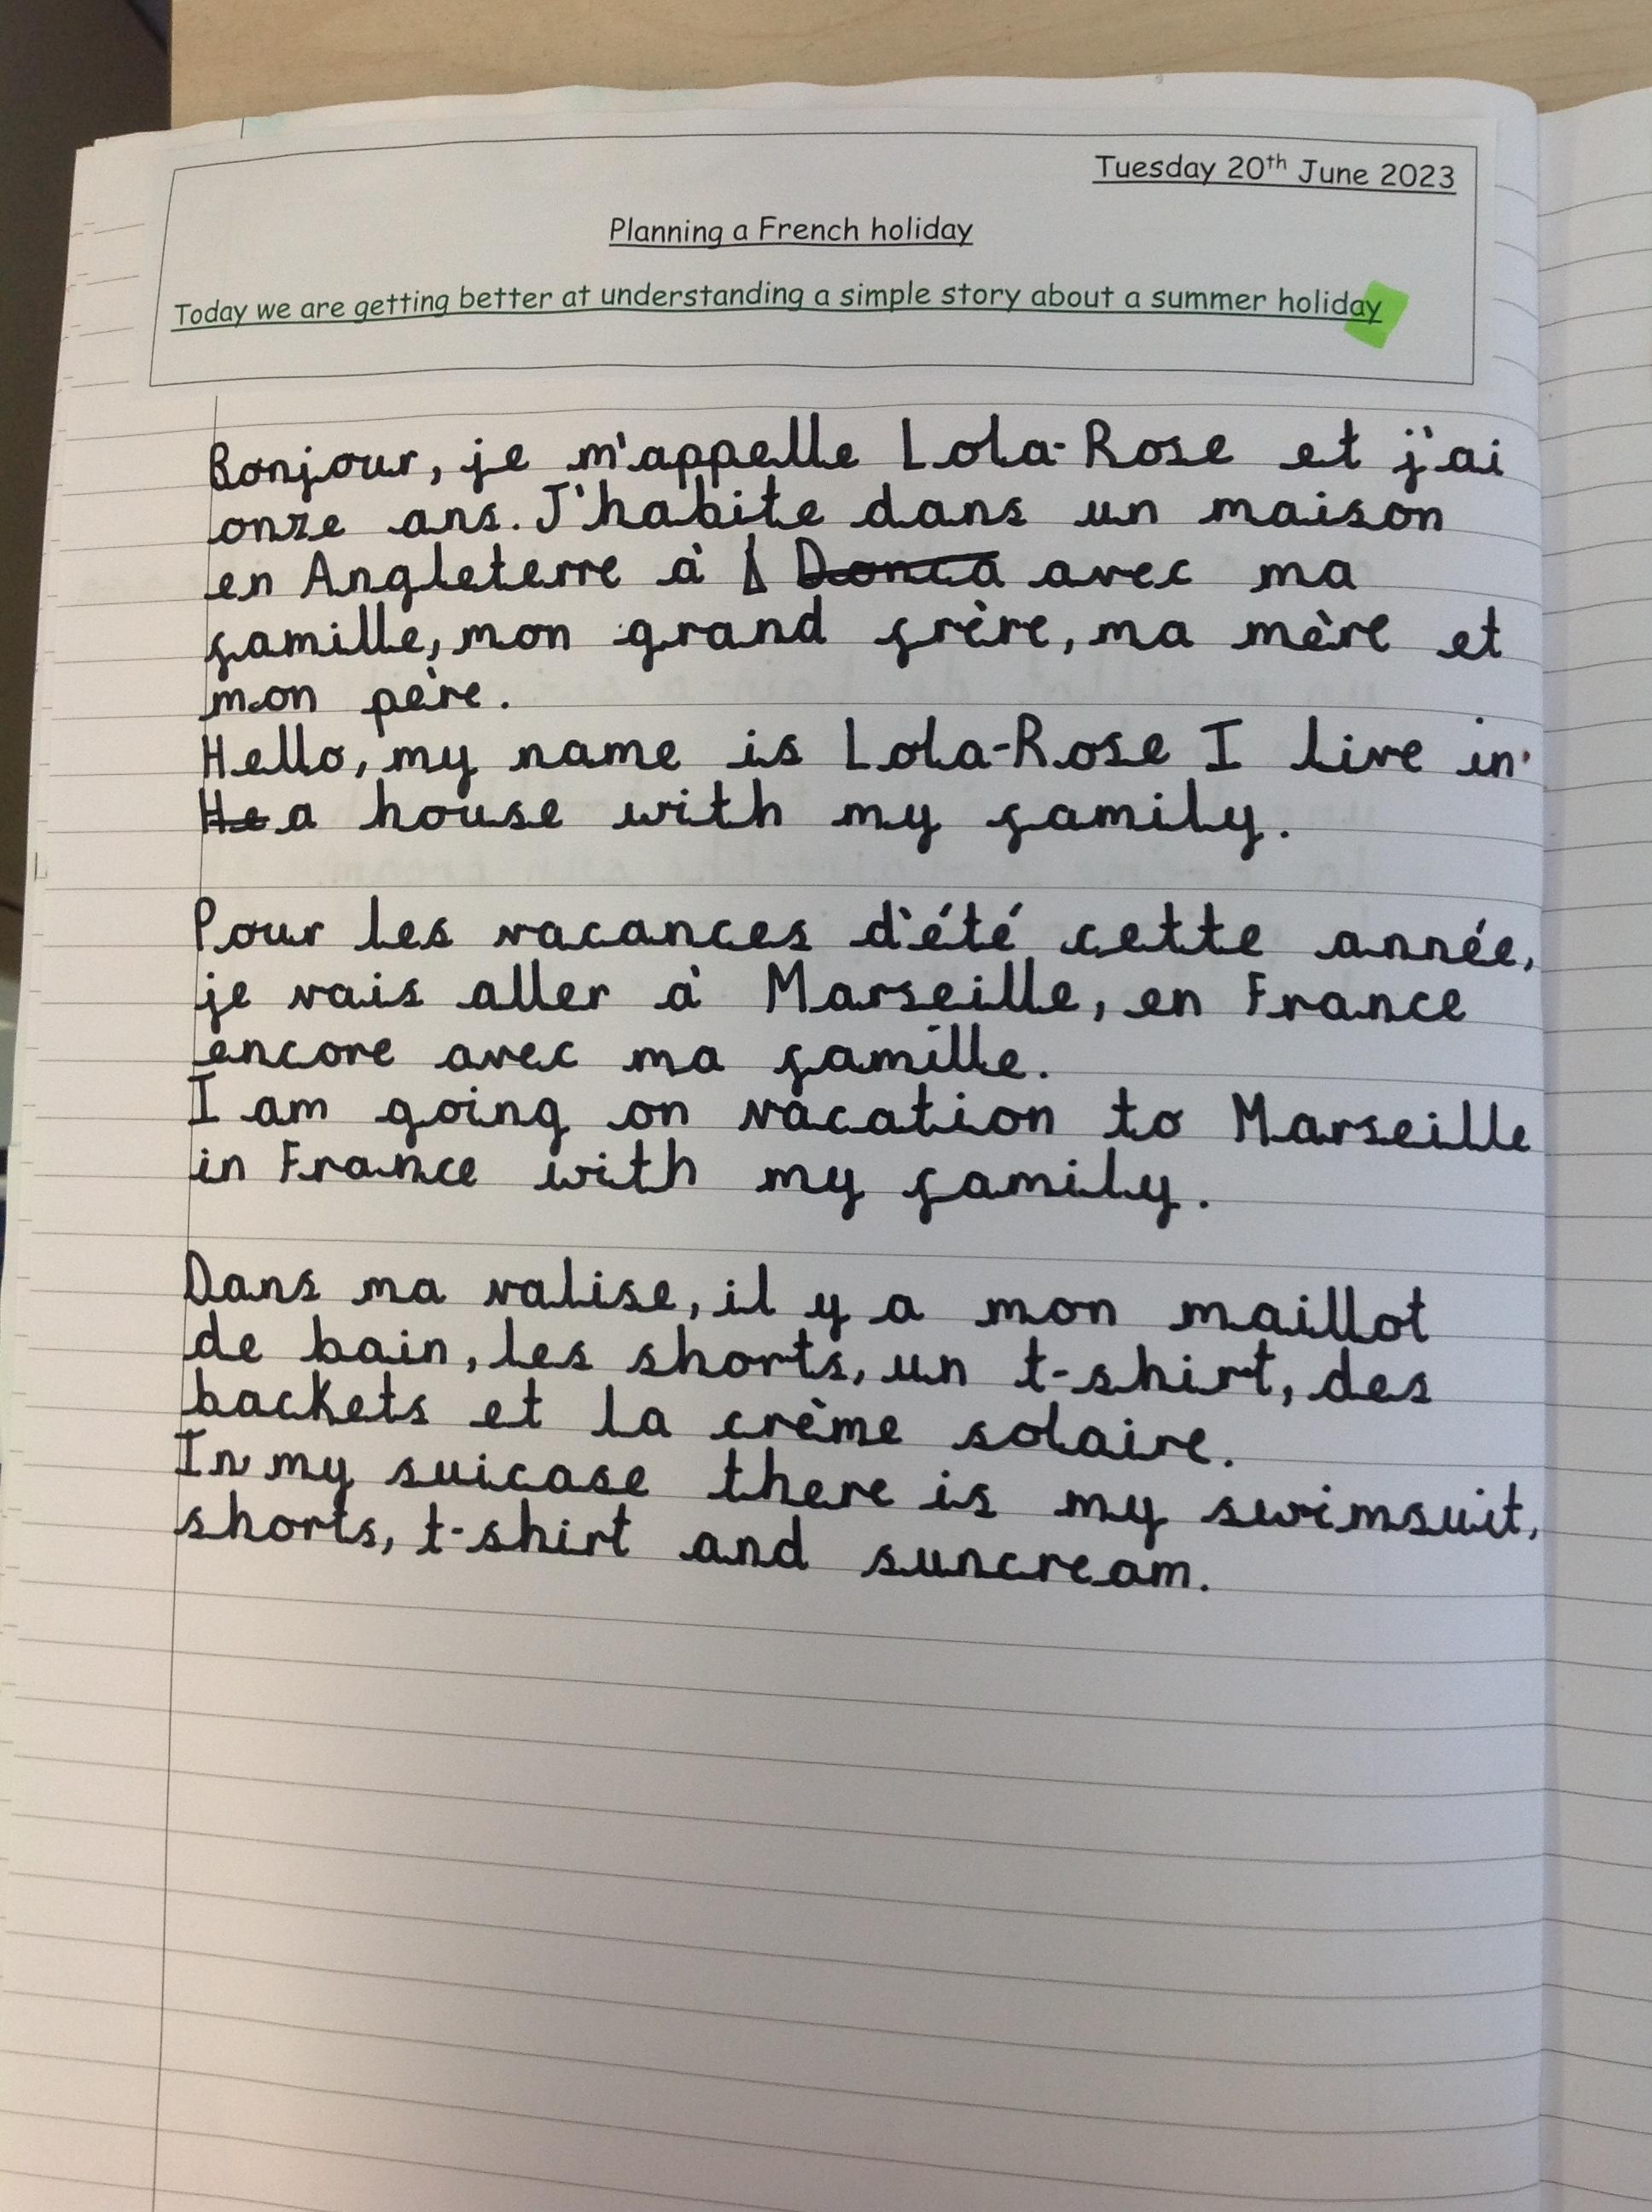 Tuesday 20th June 2023
Planning a French holiday
Today we are getting better at understanding a simple story about a summer holiday
Bonjour, je m'appelle Lola-Rose et j'ai
onze ans. J'habite dans un maison
en Angleterre à avec ma
famille, mon grand frère, ma mère et
mon père.
Hello, my name is Lola-Rose I live in
He a house with my family.
Pour les vacances d'été cette année,
je vais aller à Marseille, en France
encore avec ma famille.
I am going on vacation to Marseille
in France with my family.
Dans ma valise, il y a mon maillot
de bain, les shorts, un t-shirt, des
backets et la crème solaire.
In my suicase there is my swimsuit,
shorts, t-shirt and suncream.